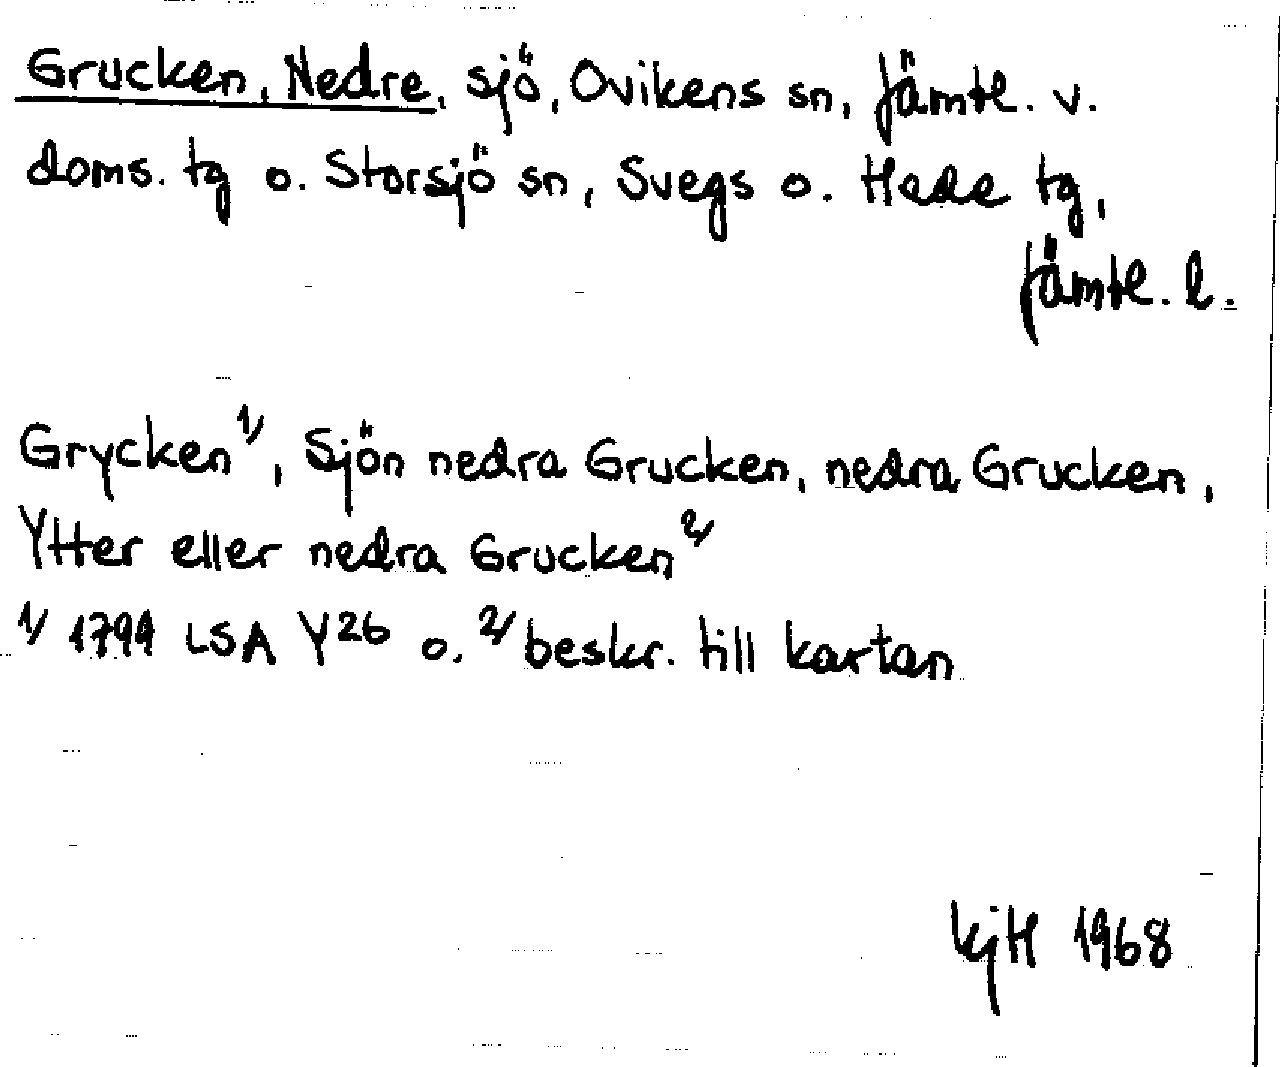 Grucken, Nedre, sjö, Ovikens sn, Jämtl. v.
doms. tg o. Storsjö sn, Svegs o. Hede tg,
Jämtl. l.
Grycken 1/, Sjön nedra Grucken, nedra Grucken,
Ytter eller nedra Grucken 2/
1/ 1799 LSA Y26 o. 2/ beskr. till kartan
KjH 1968